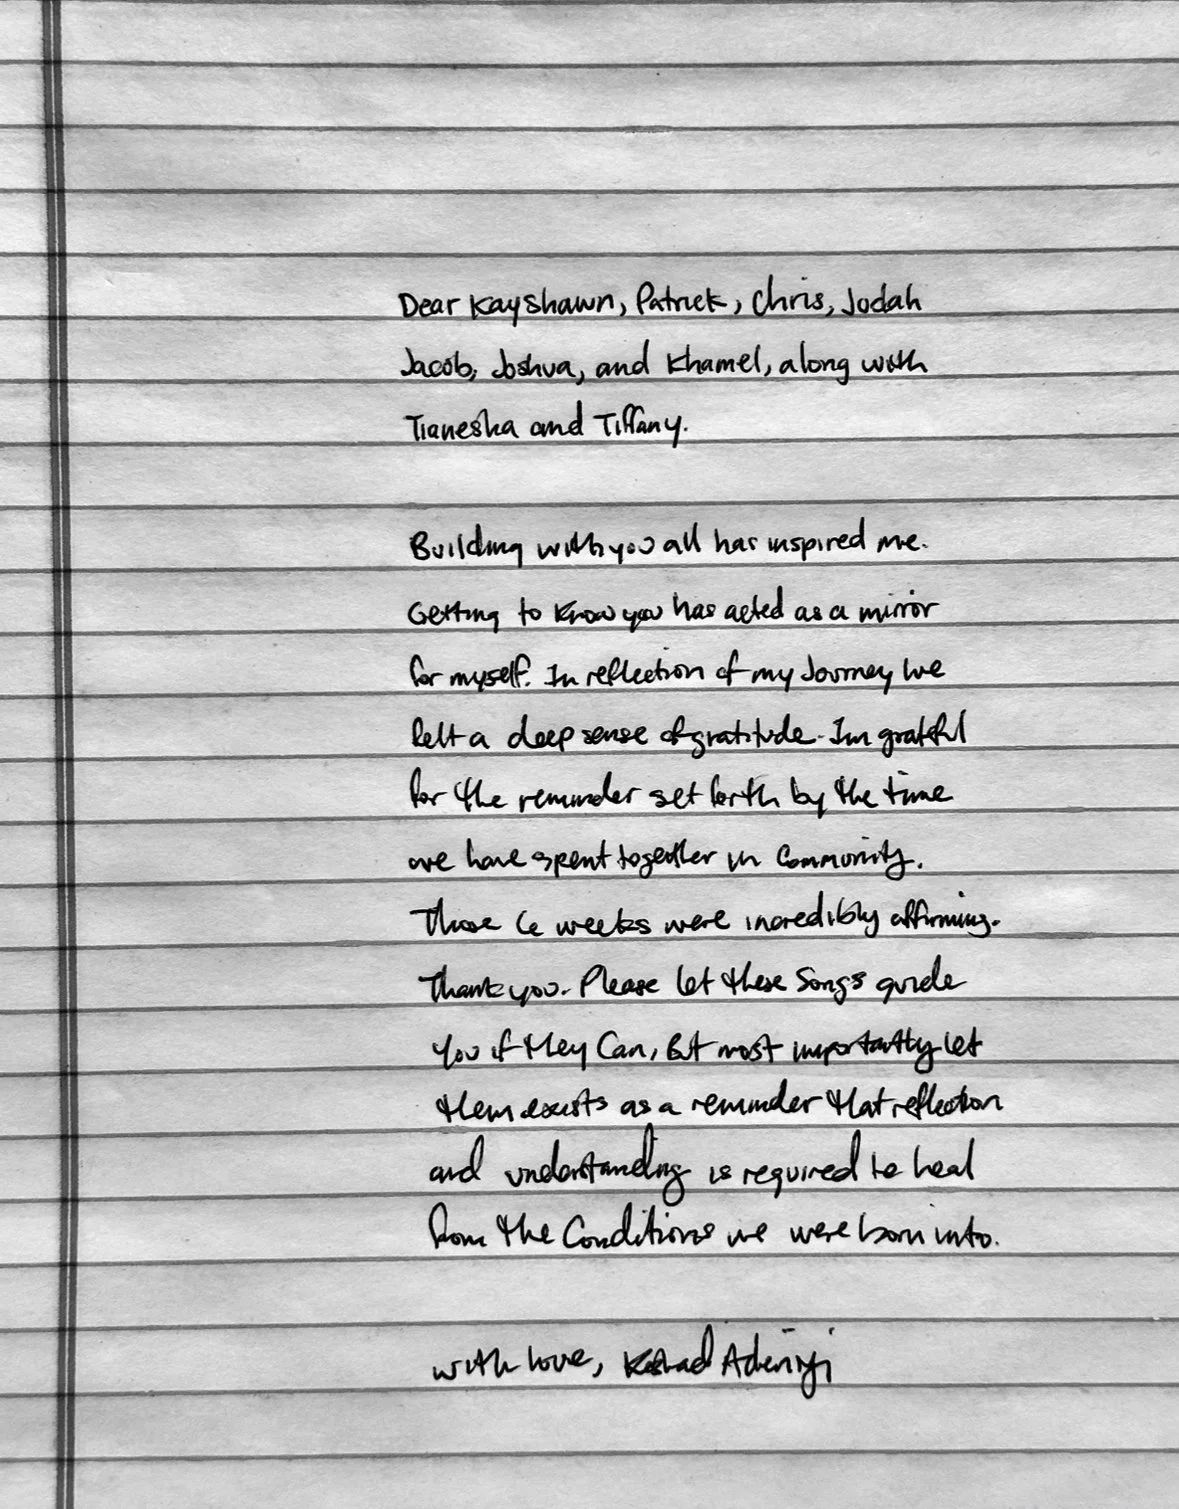 Dear Kayshawn, Patrick, Chris, Judah
Jacob, Joshua, and Khamel, along with
Tianesha and Tiffany.
Building with you all has inspired me.
Getting to know you has acted as a mirror
for myself. In reflection of my Journey Ive
felt a deep sense of gratitude. Im grateful
for the reminder set forth by the time
we have spent together in Community.
Those 6 weeks were incredibly affirming.
Thank you. Please let these Songs guide
You if they Can, But most importantly let
them exists as a reminder that reflection
and understanding is required to heal
from the Conditions we were born into.
with love, Adeniyi